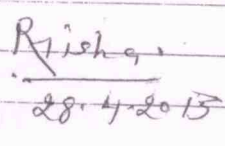 Risha.
28.4.2015